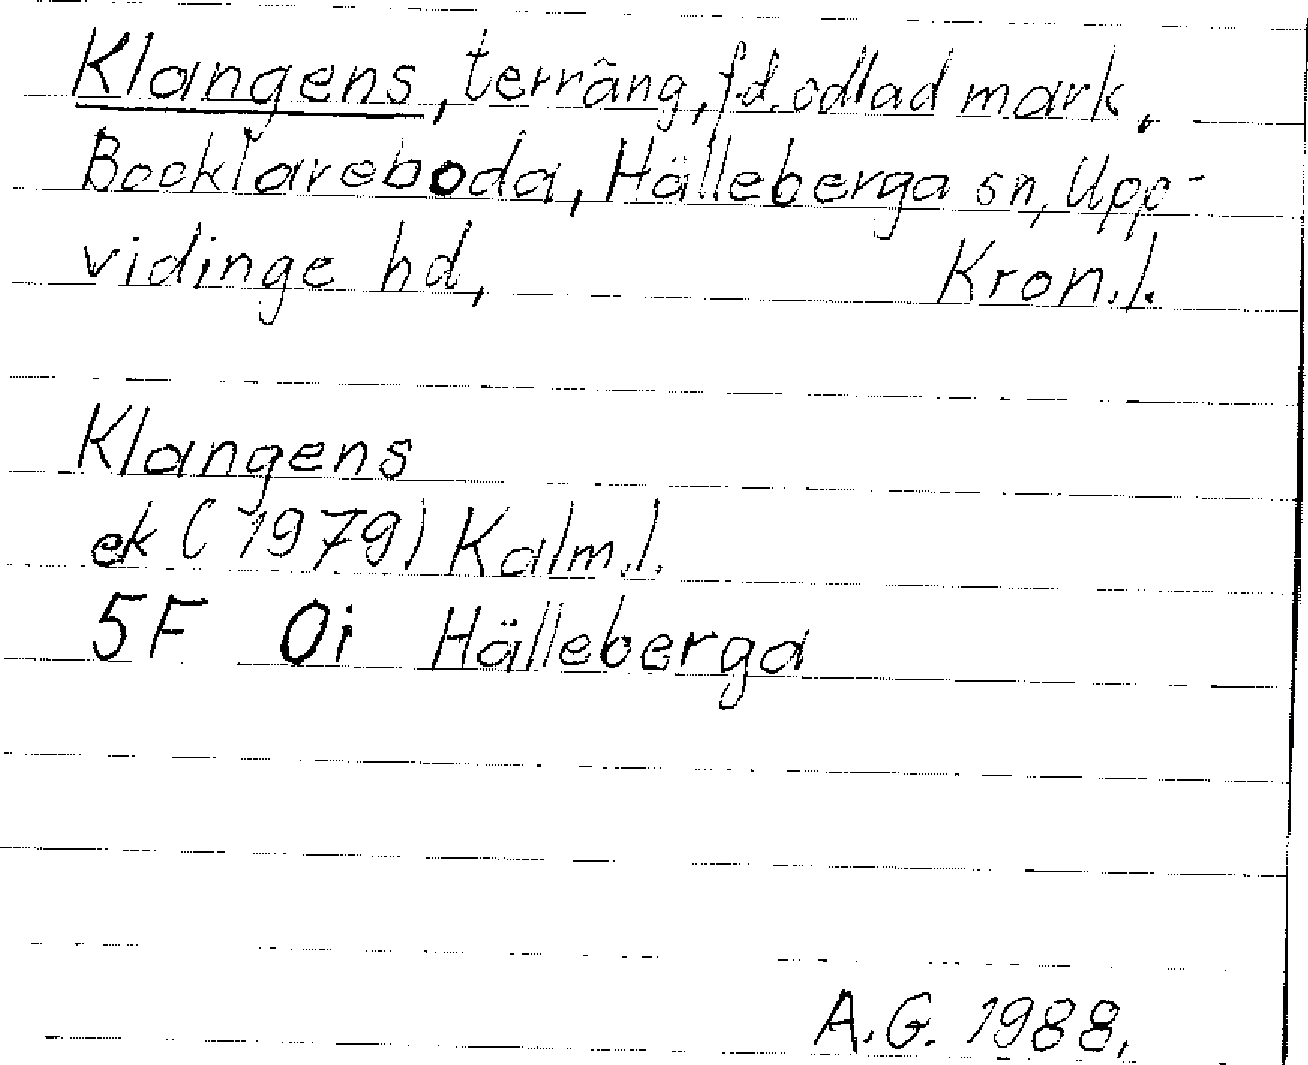 Klangens, terräng, f.d. odlad mark.
Bocklareboda, Hälleberga sn, Upp-
vidinge hd, Kron.l.
Klangens
ek (1979) Kalm.l.
5F 0i Hälleberga
A.G. 1988.